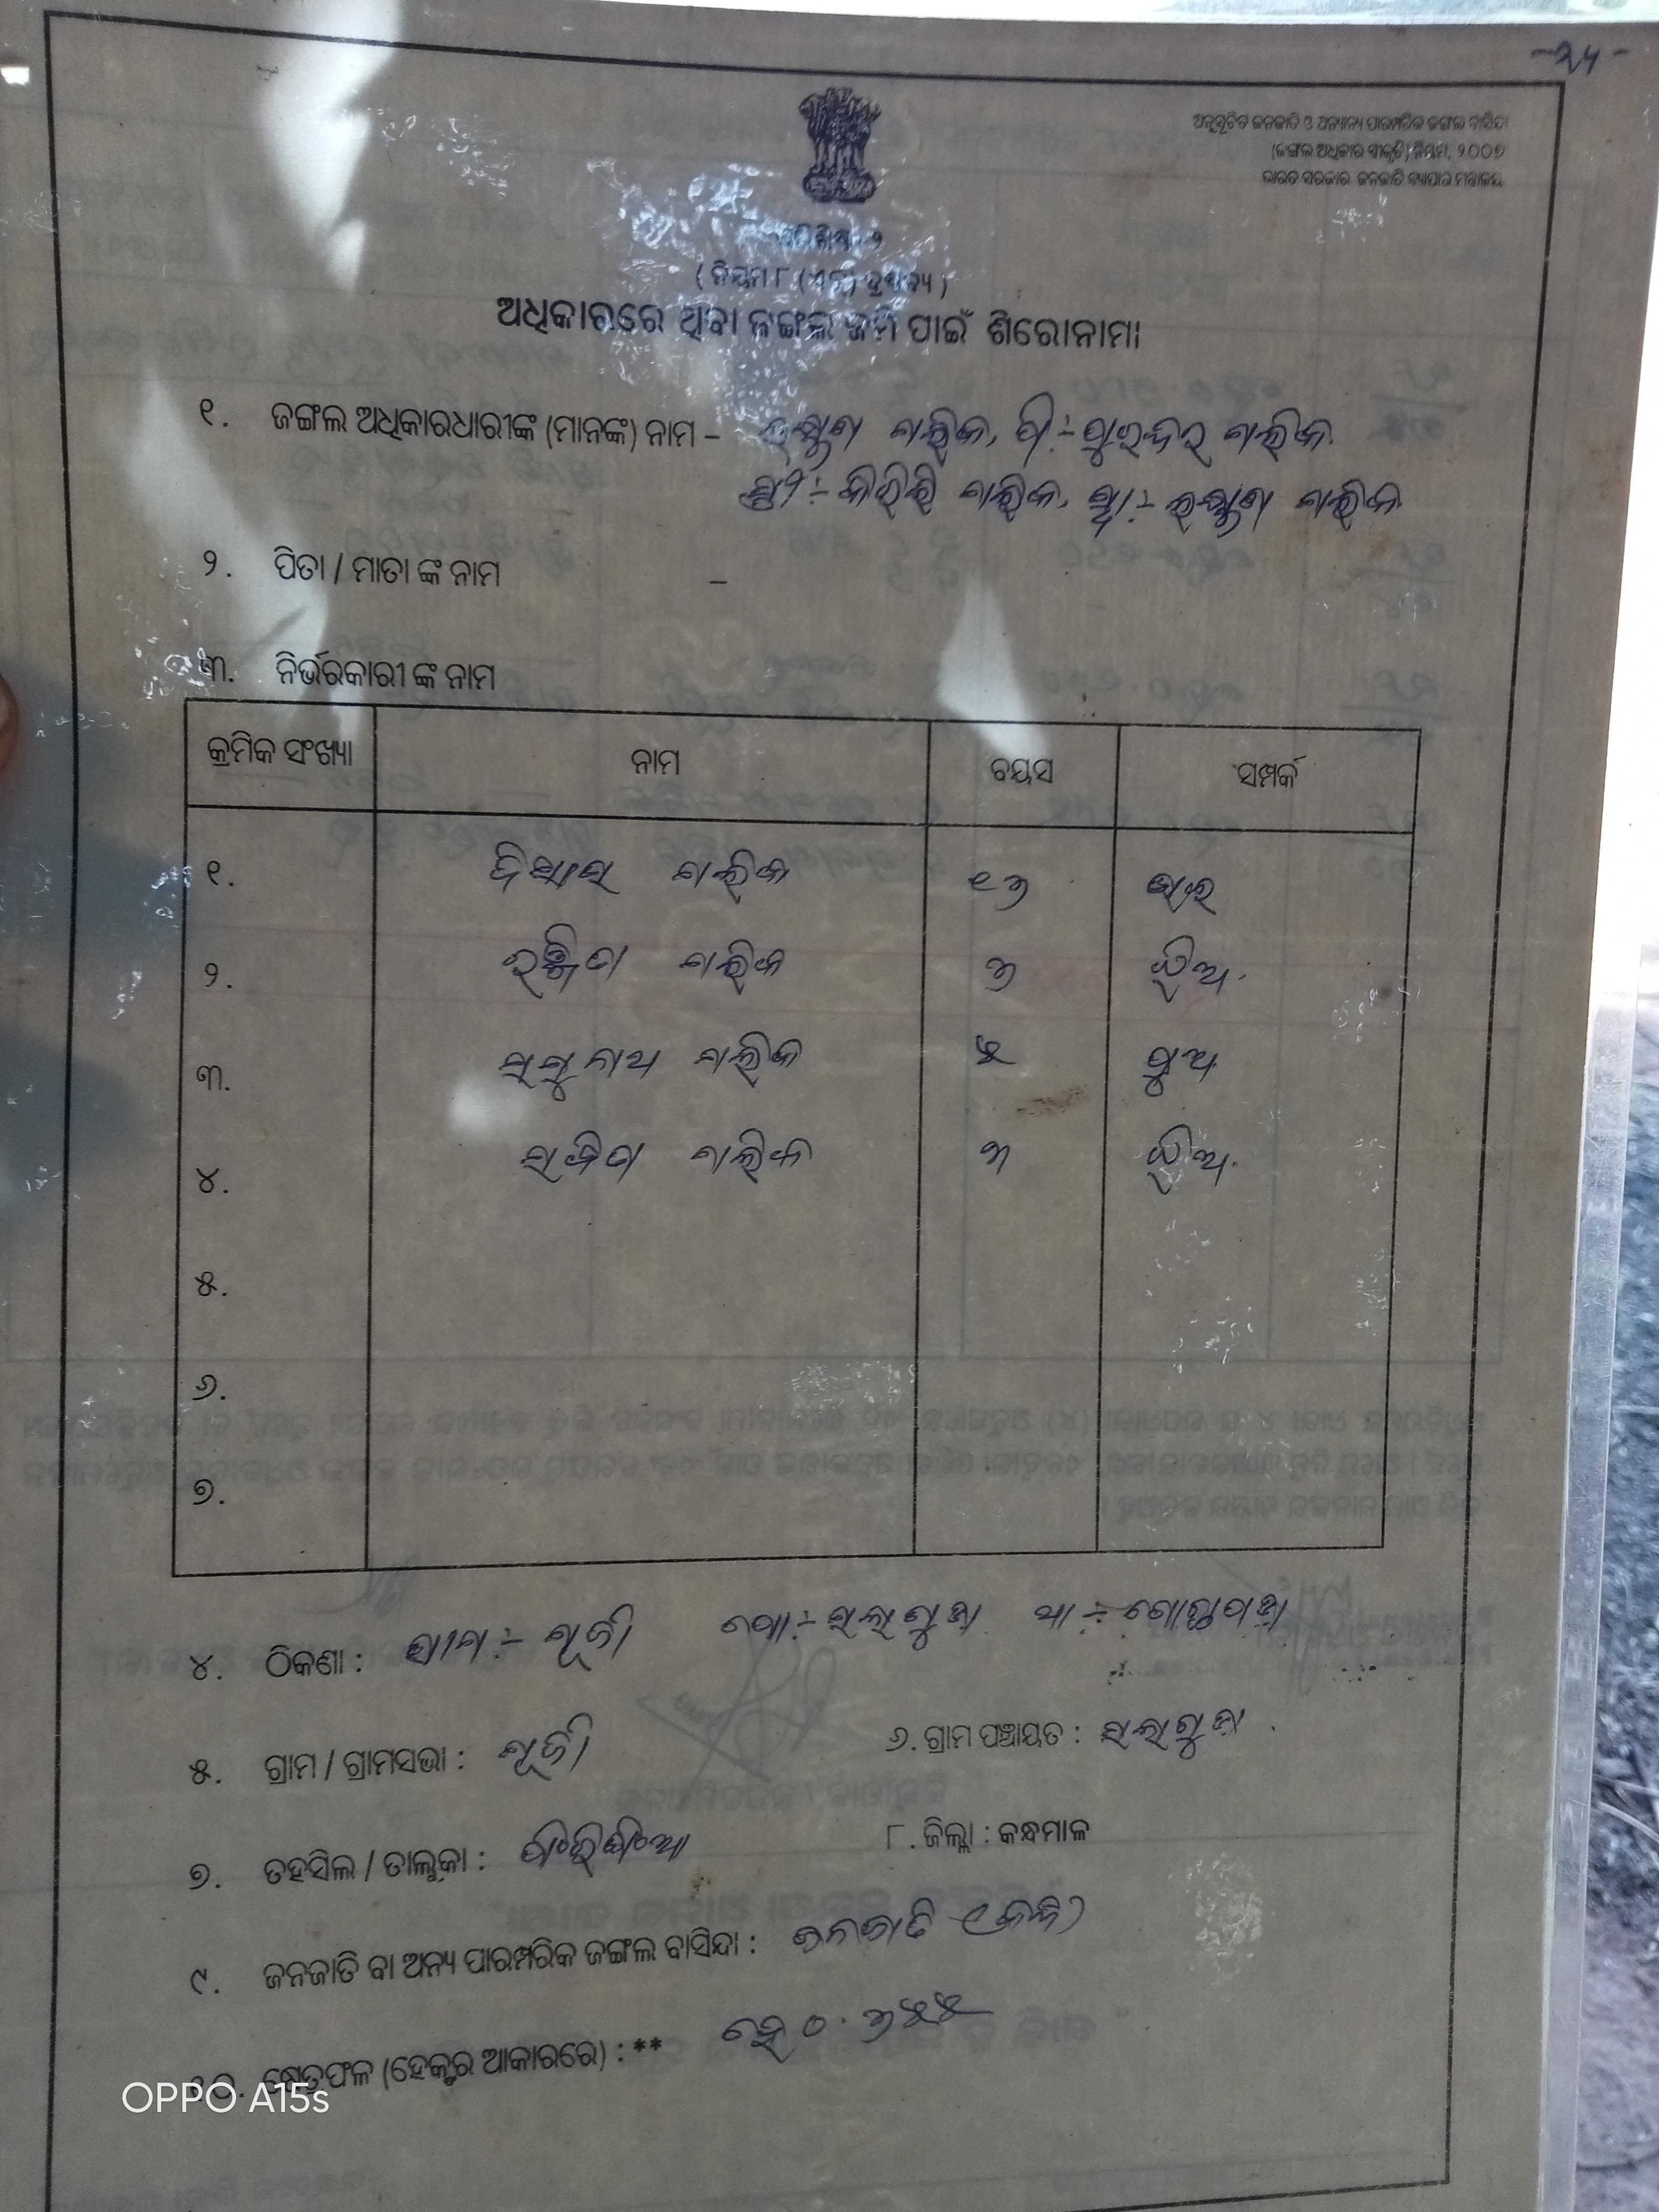 -୨୪-
ଅନୁସୂଚିତ ଜନଜାତି ଓ ଅନ୍ୟାନ୍ୟ ପାରମ୍ପରିକ ଜଙ୍ଗଲ ବାସିନ୍ଦା
(ଜଙ୍ଗଲ ଅଧିକାର ସ୍ୱୀକୃତି) ନିୟମ, ୨୦୦୭
ଭାରତ ସରକାର ଜନଜାତି ବ୍ୟାପାର ମନ୍ତ୍ରାଳୟ
( ନିୟମ ୮ ଦ୍ରଷ୍ଟବ୍ୟ )
ଅଧିକାରରେ ଥିବା ଜଙ୍ଗଲ ଜମି ପାଇଁ ଶିରୋନାମା
୧. ଜଙ୍ଗଲ ଅଧିକାରଧାରୀଙ୍କ (ମାନଙ୍କ) ନାମ – ଲକ୍ଷ୍ମଣ ମଲିକ, ପି:- ପୁରନ୍ଦର ମଲିକ
ସ୍ତ୍ରୀ:- ମଲିକ, ସ୍ୱା:- ଲକ୍ଷ୍ମଣ ମଲିକ
୨. ପିତା / ମାତା ଙ୍କ ନାମ –
୩. ନିର୍ଭରକାରୀ ଙ୍କ ନାମ
କ୍ରମିକ ସଂଖ୍ୟା ନାମ ବୟସ ସମ୍ପର୍କ
୧. ମଲିକ ୧୬ ଭାଇ
୨. ରଞ୍ଜିତା ମଲିକ ୭ ଝିଅ
୩. ରଘୁନାଥ ମଲିକ ୫ ପୁଅ
୪. ସଞ୍ଜିତା ମଲିକ ୩ ଝିଅ
୫.
୬.
୭.
୪. ଠିକଣା : ଗ୍ରାମ:- ପୋ:- ସଲାଗୁଡା ଥା:- ଗୋଛାପଡା
୫. ଗ୍ରାମ / ଗ୍ରାମସଭା :
୬. ଗ୍ରାମ ପଞ୍ଚାୟତ : ସଲାଗୁଡା
୭. ତହସିଲ / ତାଲୁକା : ଫିରିଙ୍ଗିଆ
୮. ଜିଲ୍ଲା : କନ୍ଧମାଳ
୯. ଜନଜାତି ବା ଅନ୍ୟ ପାରମ୍ପରିକ ଜଙ୍ଗଲ ବାସିନ୍ଦା : ଜନଜାତି (କନ୍ଧ)
୧୦. କ୍ଷେତ୍ରଫଳ (ହେକ୍ଟର ଆକାରରେ) : ** ହେ ୦.୬୫୫
OPPO A15s